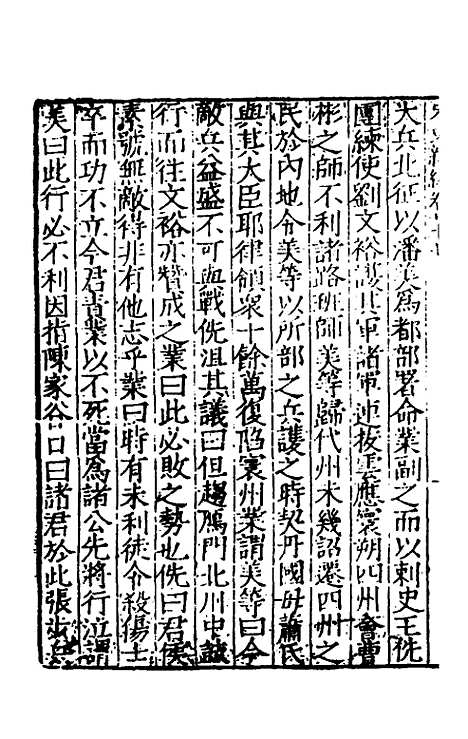 大兵北征以潘美為都部署命業副之而以刺史王侁
團練使劉文裕護其軍諸軍連拔雲應寰朔四州會曹
彬之師不利諸路班師美等歸代州未幾詔遷四州之
民於內地令美等以所部之兵護之時契丹國母蕭氏
與其大臣耶律領衆十餘萬復陷寰州業謂美等曰今
敵兵益盛不可與戰侁沮其議曰但趨鴈門北川中
行而往文裕亦贊成之業曰此必敗之勢也侁曰君侯
素號無敵得非有他志乎業曰時有未利徒令殺傷士
卒而功不立今君責業以不死當為諸公先將行泣謂
美曰此行必不利因指陳家谷口曰諸君於此張步兵